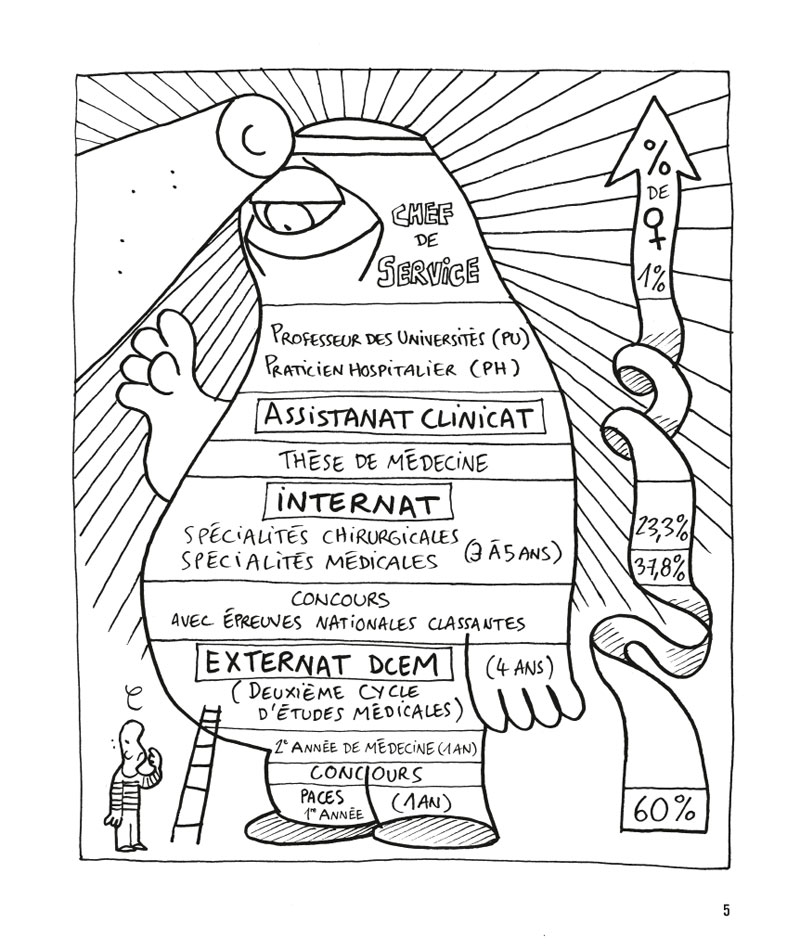 CHEF
DE
SERVICE
PROFESSEUR DES UNIVERSITÉS (PU)
PRATICIEN HOSPITALIER (PH)
ASSISTANAT CLINICAT
THÈSE DE MÉDECINE
INTERNAT
SPÉCIALITÉS CHIRURGICALES
SPÉCIALITÉS MÉDICALES
(3 À 5 ANS)
CONCOURS
AVEC ÉPREUVES NATIONALES CLASSANTES
EXTERNAT DCEM
(4 ANS)
(DEUXIÈME CYCLE
D'ÉTUDES MÉDICALES)
2e ANNÉE DE MÉDECINE (1 AN)
CONCOURS
PACES
1re ANNÉE
(1 AN)
%
DE
♀
1%
23,3%
37,8%
60%
5